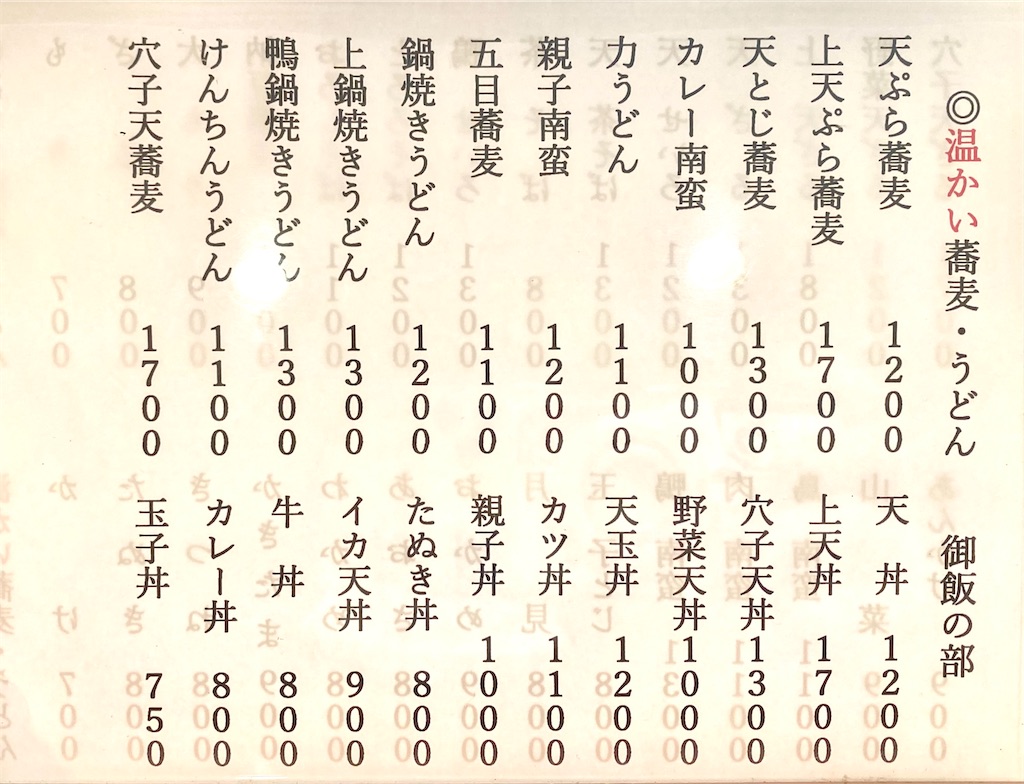 ◎温かい蕎麦・うどん
天ぷら蕎麦 1200
上天ぷら蕎麦 1700
天とじ蕎麦 1300
カレー南蛮 1000
力うどん 1100
親子南蛮 1200
五目蕎麦 1100
鍋焼きうどん 1200
上鍋焼きうどん 1300
鴨鍋焼きうどん 1300
けんちんうどん 1100
穴子天蕎麦 1700
御飯の部
天 丼 1200
上天丼 1700
穴子天丼 1300
野菜天丼 1000
天玉丼 1200
カツ丼 1100
親子丼 1000
たぬき丼 800
イカ天丼 900
牛 丼 800
カレー丼 800
玉子丼 750